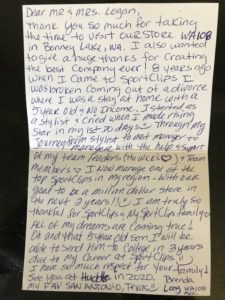 Dear Mr & Mrs. Logan,
Thank you so much for taking
the time to visit our STORE WA108
in Bonney Lake, WA. I also wanted
to give a huge thanks for creating
the best Company ever! 8 years ago
when I came to SportClips I
was broken coming out of a divorce
where I was a stay at home with a
year old & no income. I started as
a stylist & cried when I made rising
Star in my 1st 90 days! Through my
Journey from stylist to asst manager
manager with the help & support
of my team leaders (the Wicks ♡) & Team
members ♡ I now manage one of the
SportClips in my region - with our
goal to be a million dollar store in
the next 2 years!! I am truly so
thankful for SportClips & My SportClip family
All of my dreams are coming true!
Oh and that year old son I will be
able to send him to college in 3 years
due to my career at SportClips!
I have so much respect for your family!
See you at Huddle in 2020, Brenda
My FAV SAN ANTONIO, TEXAS! WA108